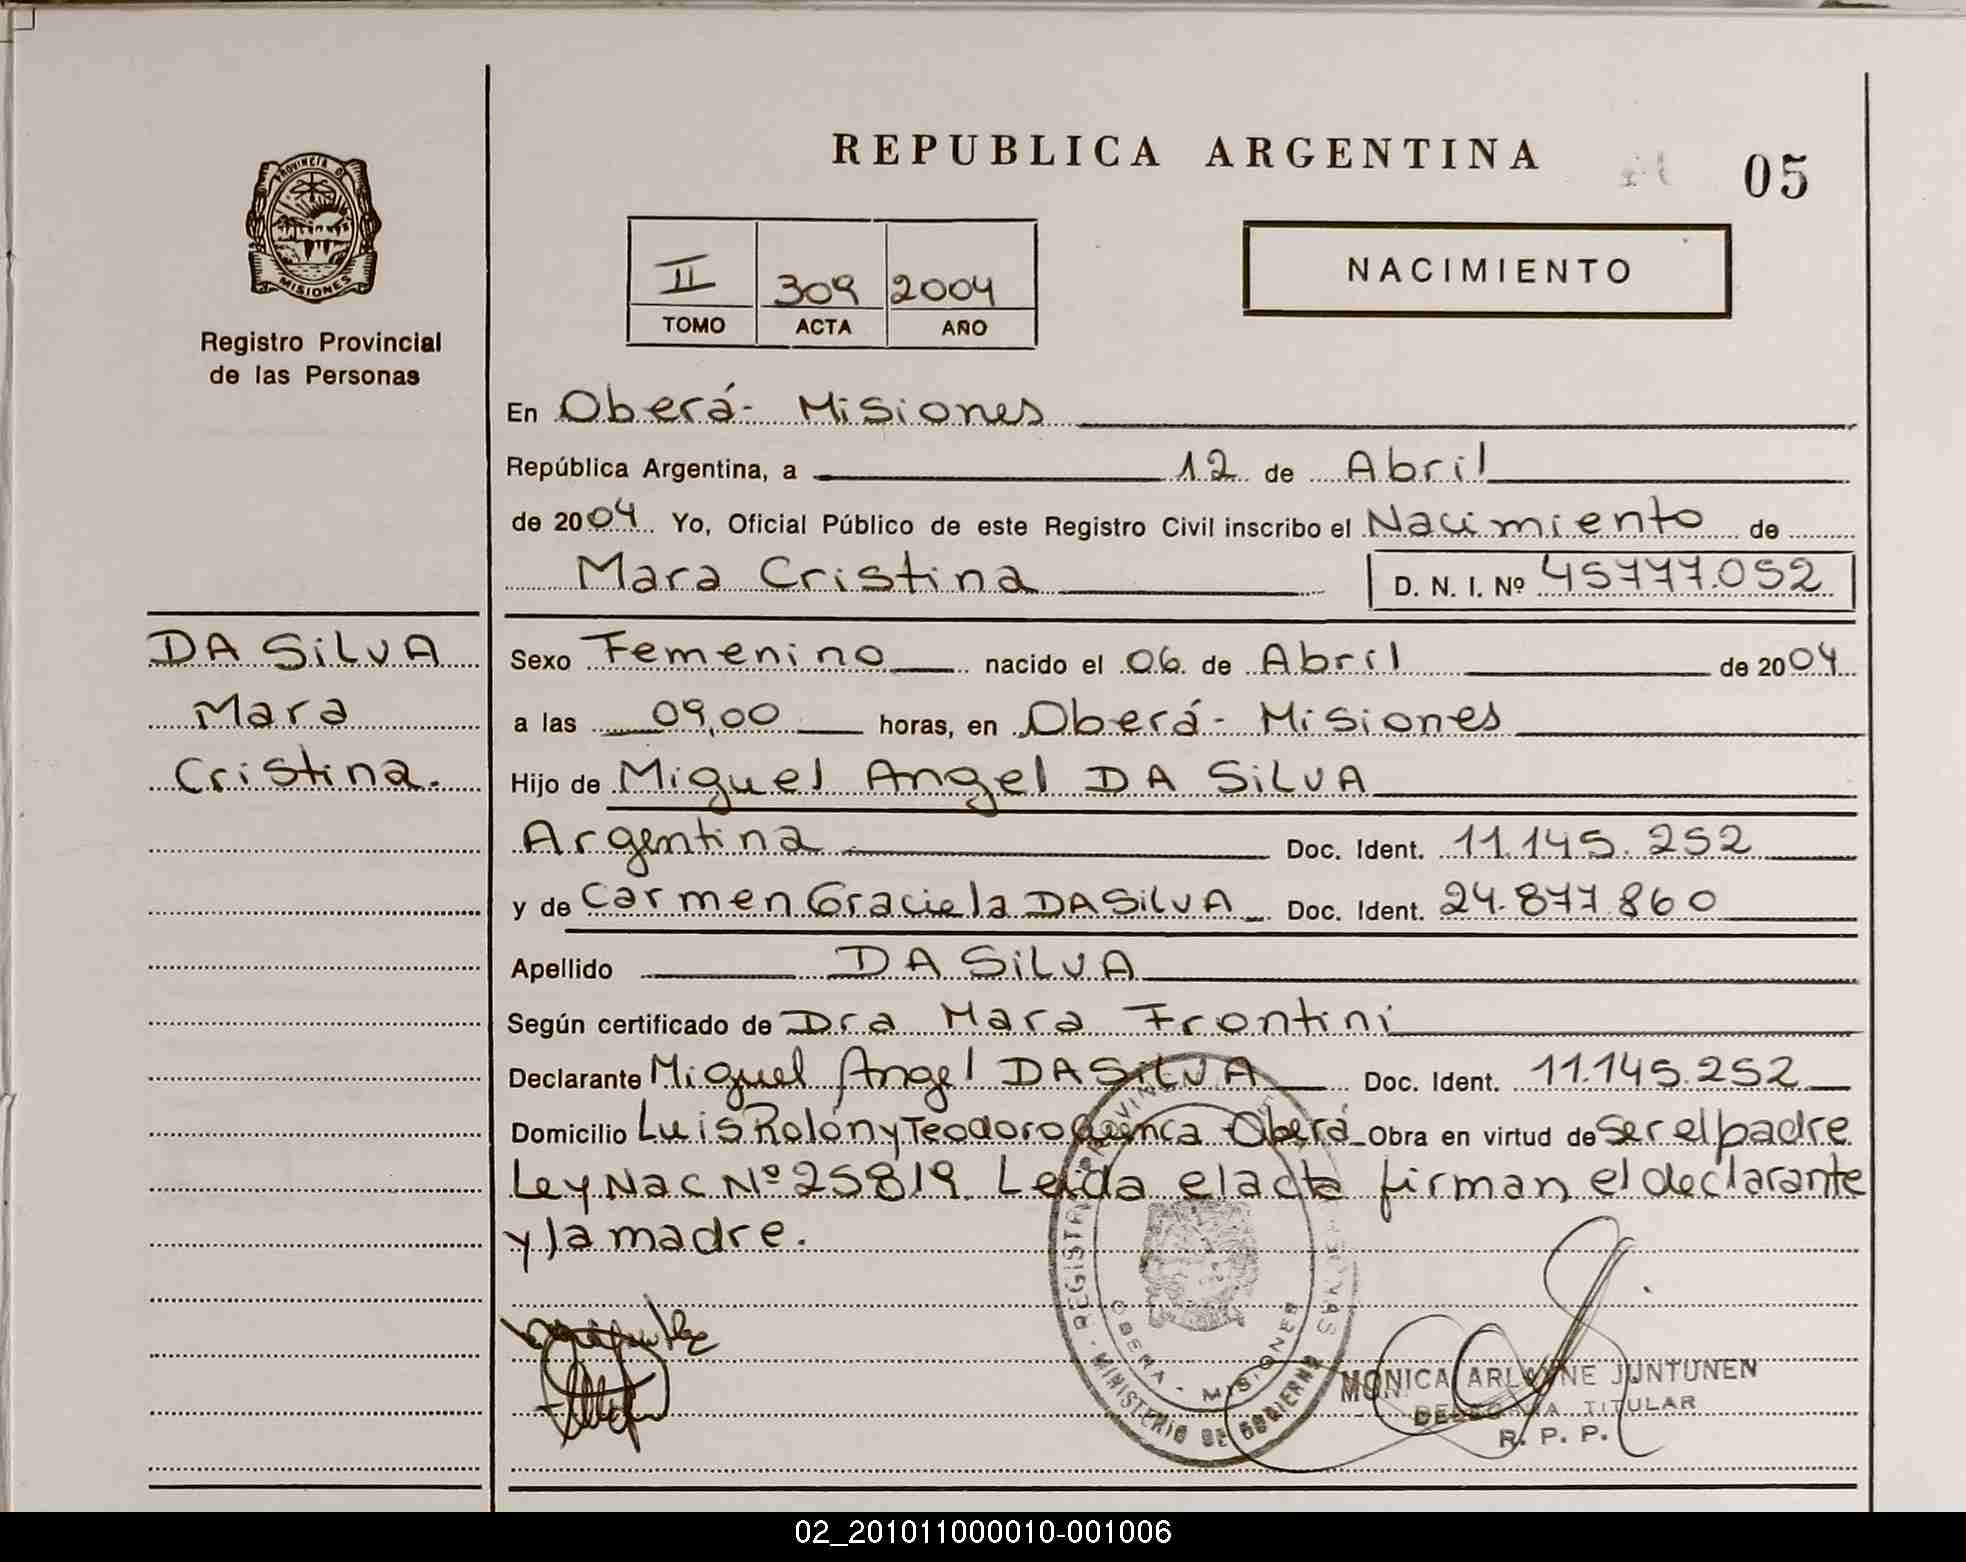 REPUBLICA ARGENTINA
05
PROVINCIA DE
MISIONES
Registro Provincial
de las Personas
II 309 2004
TOMO ACTA AÑO
NACIMIENTO
En Oberá- Misiones
República Argentina, a 12 de Abril
de 2004 Yo, Oficial Público de este Registro Civil inscribo el Nacimiento de
Mara Cristina D. N. I. Nº 45777.052
DA SiLVA
Mara
Cristina.
Sexo Femenino nacido el 06 de Abril de 2004
a las 09,00 horas, en Oberá- Misiones
Hijo de Miguel Angel DA SiLVA
Argentina Doc. Ident. 11.145.252
y de Carmen Graciela DA SiLVA Doc. Ident. 24.877.860
Apellido DA SiLVA
Según certificado de Dra Mara Frontini
Declarante Miguel Angel DA SiLVA Doc. Ident. 11.145.252
Domicilio Luis Rolón y Teodoro Oberá Obra en virtud de Ser el padre
Ley Nac Nº 25819. Leida el acta firman el declarante
y la madre.
OBERA - MISIONES
MINISTERIO DE GOBIERNO
MONICA ARLAYNE JUNTUNEN
DELEGADA TITULAR
R. P. P.
02_201011000010-001006